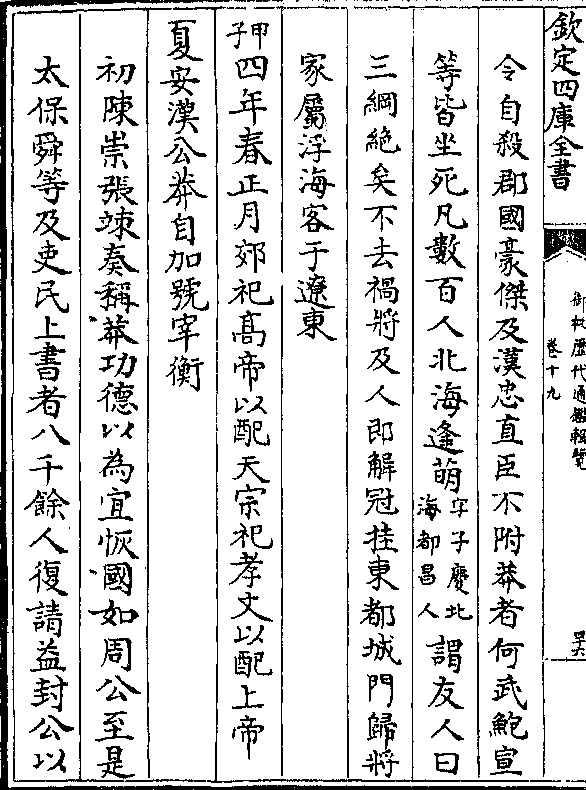 欽定四庫全書
御批歷代通鑑輯覽
卷十九
四六
令自殺郡國豪傑及漢忠直臣不附莽者何武鮑宣
等皆坐死凡數百人北海逢萌字子慶北海都昌人謂友人曰
三綱絕矣不去禍將及人即解冠挂東都城門歸將
家屬浮海客于遼東
甲子四年春正月郊祀高帝以配天宗祀孝文以配上帝
夏安漢公莽自加號宰衡
初陳崇張竦奏稱莽功德以為宜恢國如周公至是
太保舜等及吏民上書者八千餘人復請益封公以